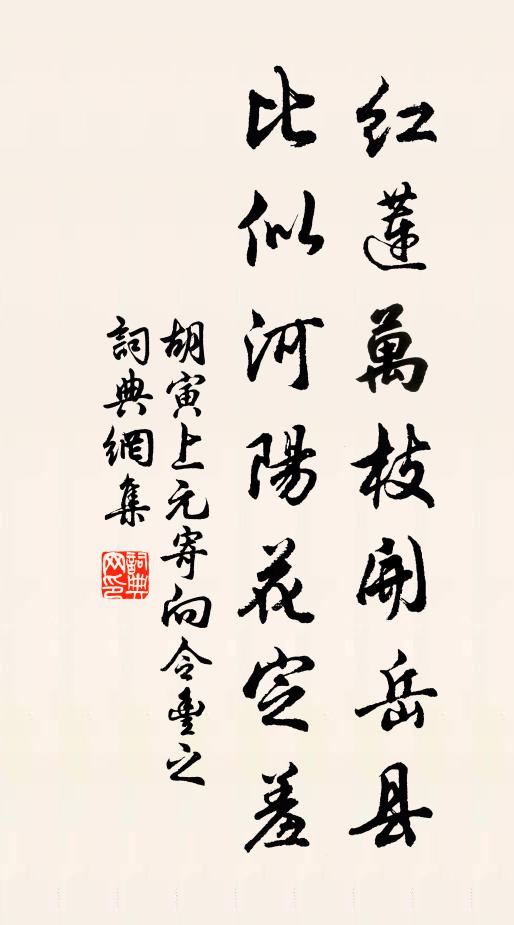 红蓮萬枝開岳县
比似河陽花定羞
胡寅上元寄向令豊之
詞典網集
詞典
网印